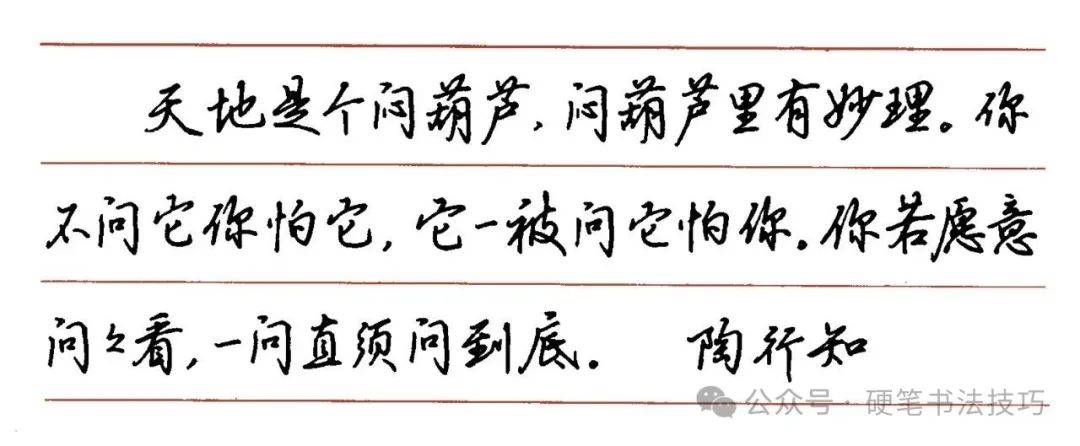 天地是个闷葫芦,闷葫芦里有妙理。你
不问它你怕它,它一被问它怕你。你若愿意
问々看,一问直须问到底。 陶行知
公众号·硬笔书法技巧